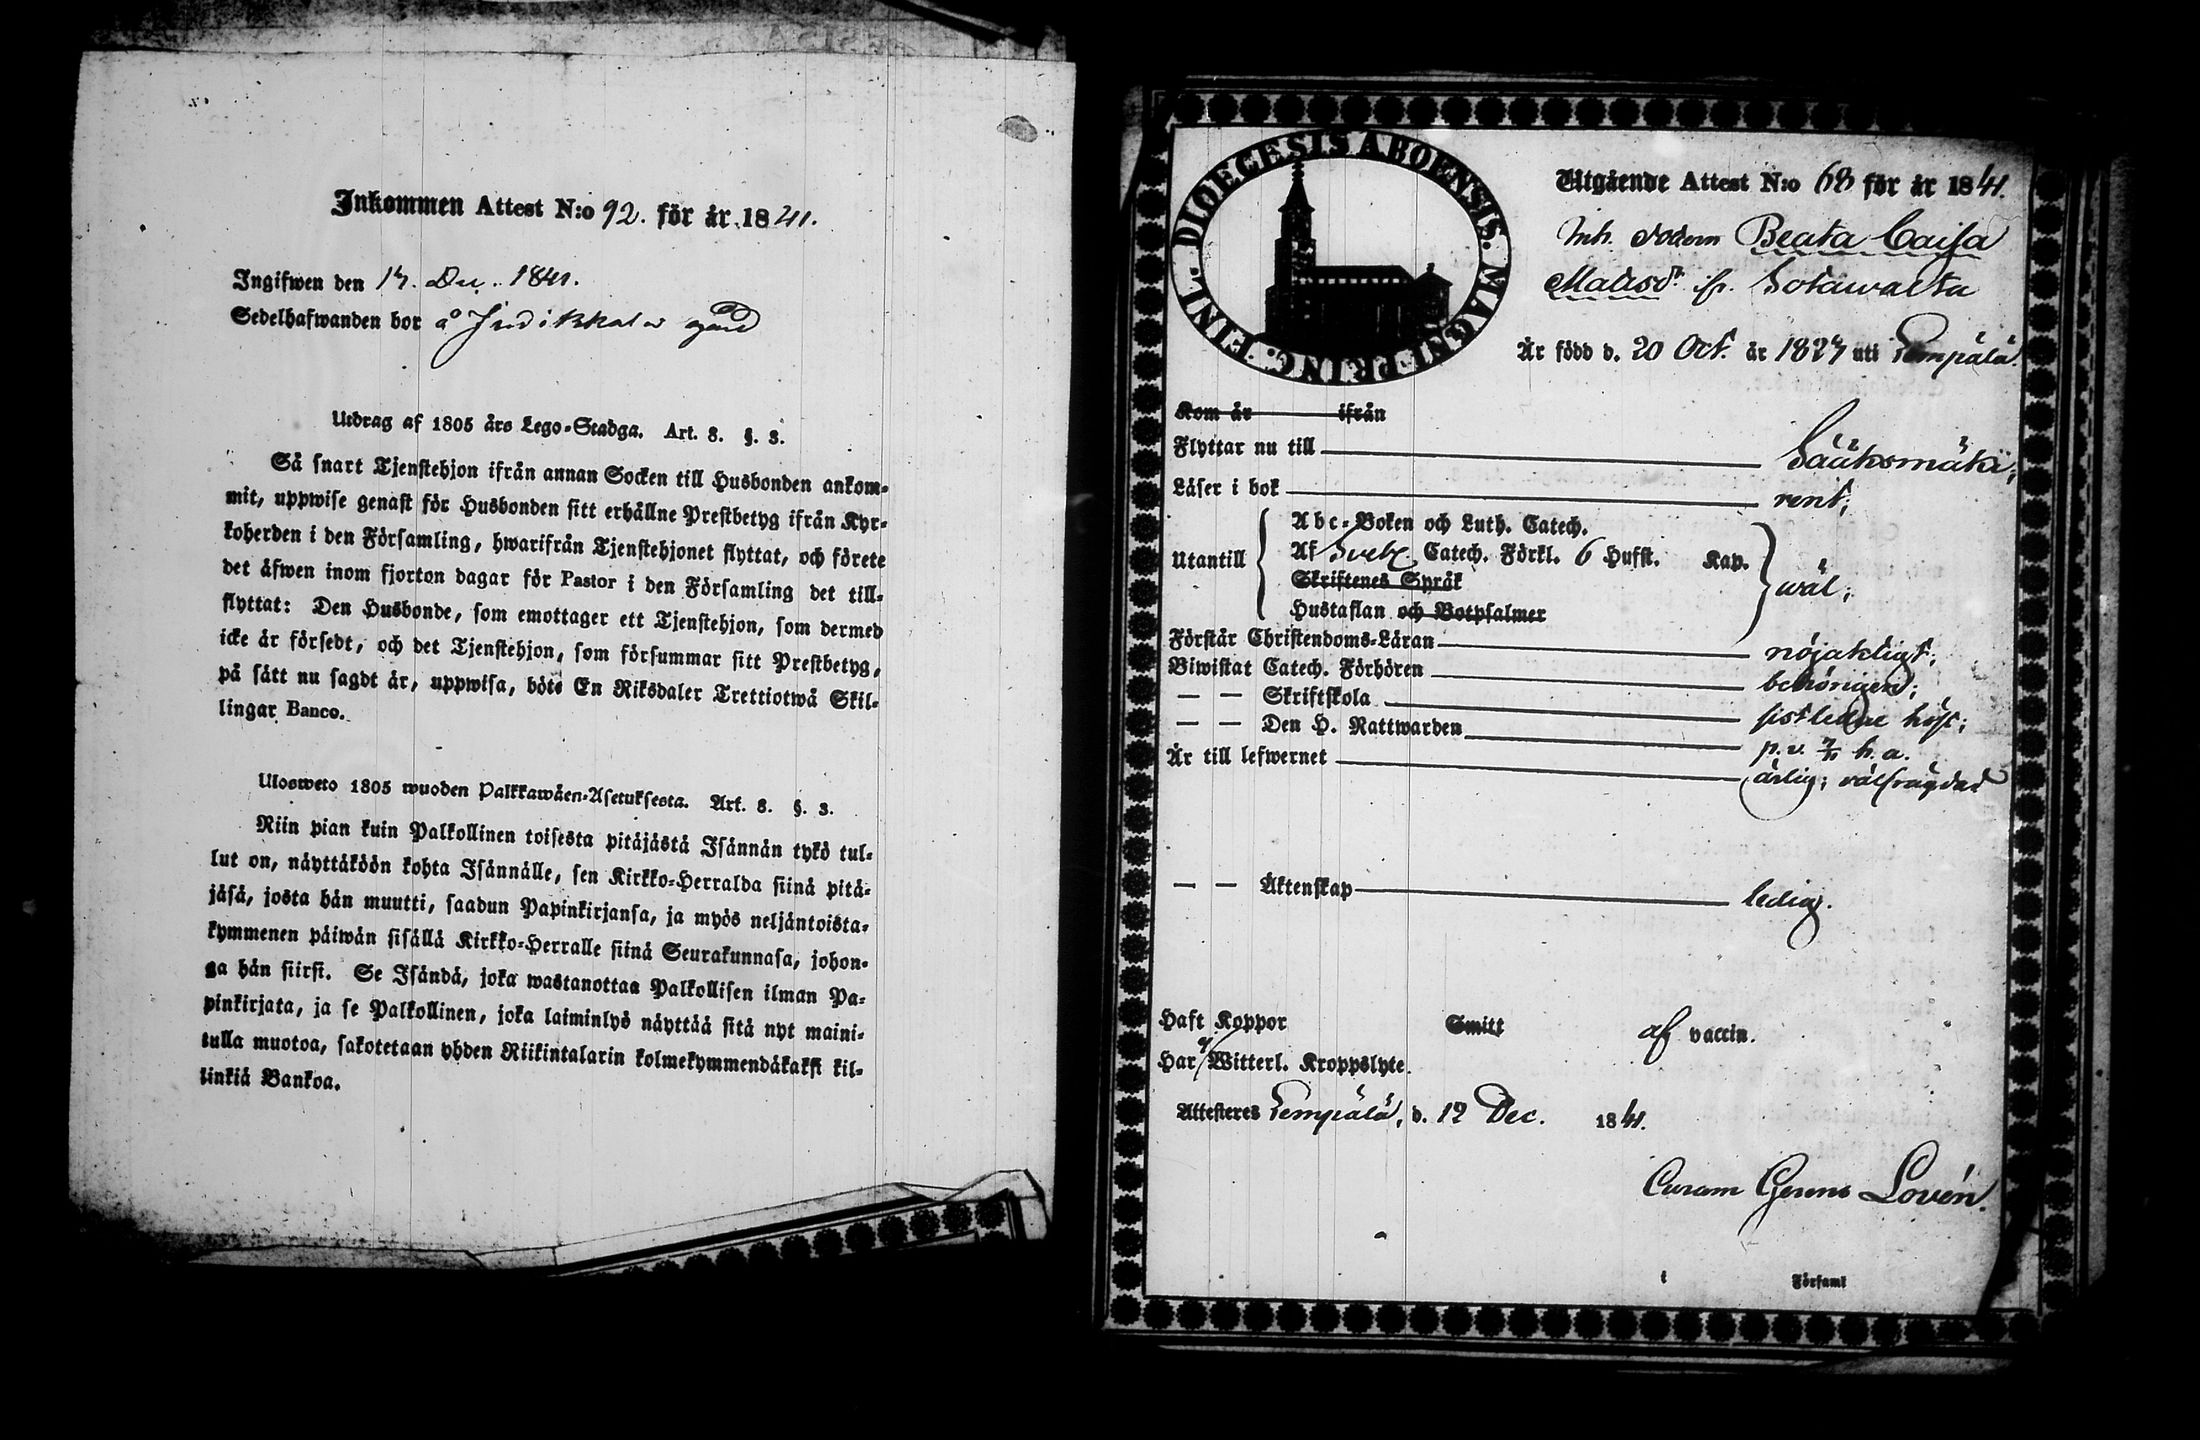 Inkommen Attest N:o 92. för år 1841.
Ingifwen den 17. Dec. 1841.
Sedelhafwanden bor å Jnd gård
Utdrag af 1805 års Lego-Stadga. Art. 8. §. 3.
Så snart Tjenstehjon ifrån annan Socken till Husbonden ankom-
mit, uppwise genast för Husbonden sitt erhållne Prestbetyg ifrån Kyr-
koherden i den Församling, hwarifrån Tjenstehjonet flyttat, och förete
det äfwen inom fjorton dagar för Pastor i den Församling det till-
flyttat: Den Husbonde, som emottager ett Tjenstehjon, som dermed
icke är försedt, och det Tjenstehjon, som försummar sitt Prestbetyg,
på sätt nu sagdt är, uppwisa, böte En Riksdaler Trettiotwå Skil-
lingar Banco.
Ulosweto 1805 wuoden Palkkawäen-Asetuksesta. Art. 8. §. 3.
Niin pian kuin Palkollinen toisesta pitäjästä Isännän tykö tul-
lut on, näyttäköön kohta Isännälle, sen Kirkko-Herralda siinä pitä-
jäsä, josta hän muutti, saadun Papinkirjansa, ja myös neljäntoista-
kymmenen päiwän sisällä Kirkko-Herralle siinä Seurakunnasa, johon-
ga hän siirsi. Se Isändä, joka wastanottaa Palkollisen ilman Pa-
pinkirjata, ja se Palkollinen, joka laiminlyö näyttää sitä nyt maini-
tulla muotoa, sakotetaan yhden Riikintalarin kolmekymmendäkaksi kil-
linkiä Bankoa.
DIOECESIS ABOENSIS. MAGNI PRINC. FINL.
Utgående Attest N:o 68 för år 1841.
Inh. Beata Caisa
Matisdr. ifr. Sotawalta
Är född d. 20 Oct. år 1827 uti Lempälä.
Kom år ifrån
Flyttar nu till Sääksmäki;
Läser i bok rent;
Abc-Boken och Luth. Catech.
Utantill Af Svebel. Catech. Förkl. 6 Hufst. Kap. wäl;
Skriftenes Språk
Hustaflan och Botpsalmer
Förstår Christendoms-Läran nöjakligt;
Biwistat Catech. Förhören behörigen;
— — Skriftskola sistledne höst;
— — Den H. Nattwarden p. v. h. a.
Är till lefwernet ärlig; välfrägdad
— — Äktenskap ledig.
Haft Koppor Smitt af vaccin.
Har ej Witterl. Kroppslyte.
Attesteres Lempälä, d. 12 Dec. 1841.
Curam Gerens Lovén.
i Församl